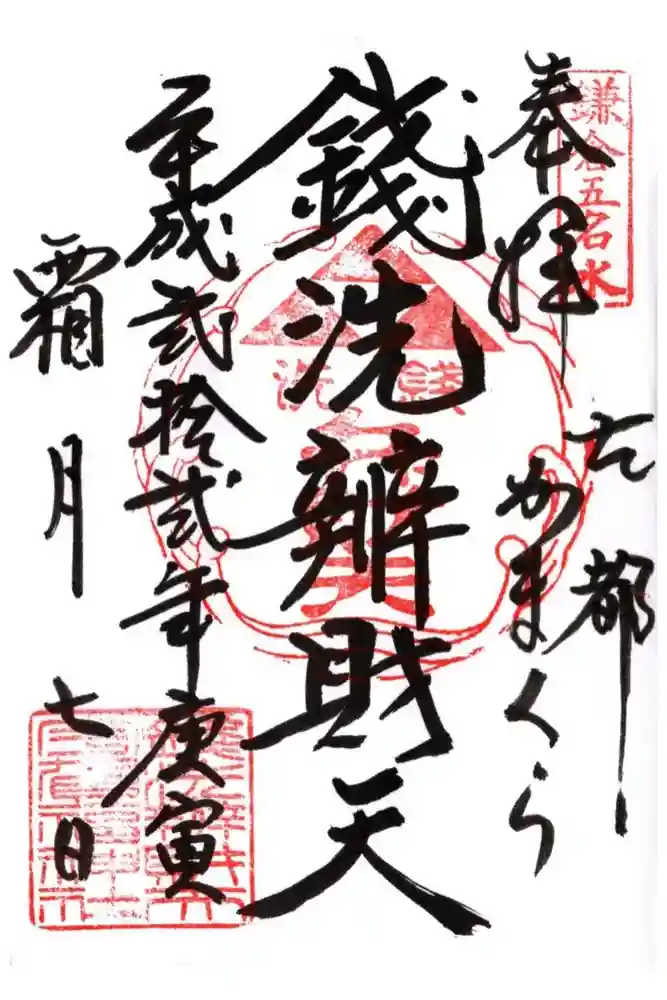 鎌倉五名水
奉拝
古都
かまくら
錢洗辨財天
錢洗
平成弐拾弐年庚寅
霜月七日